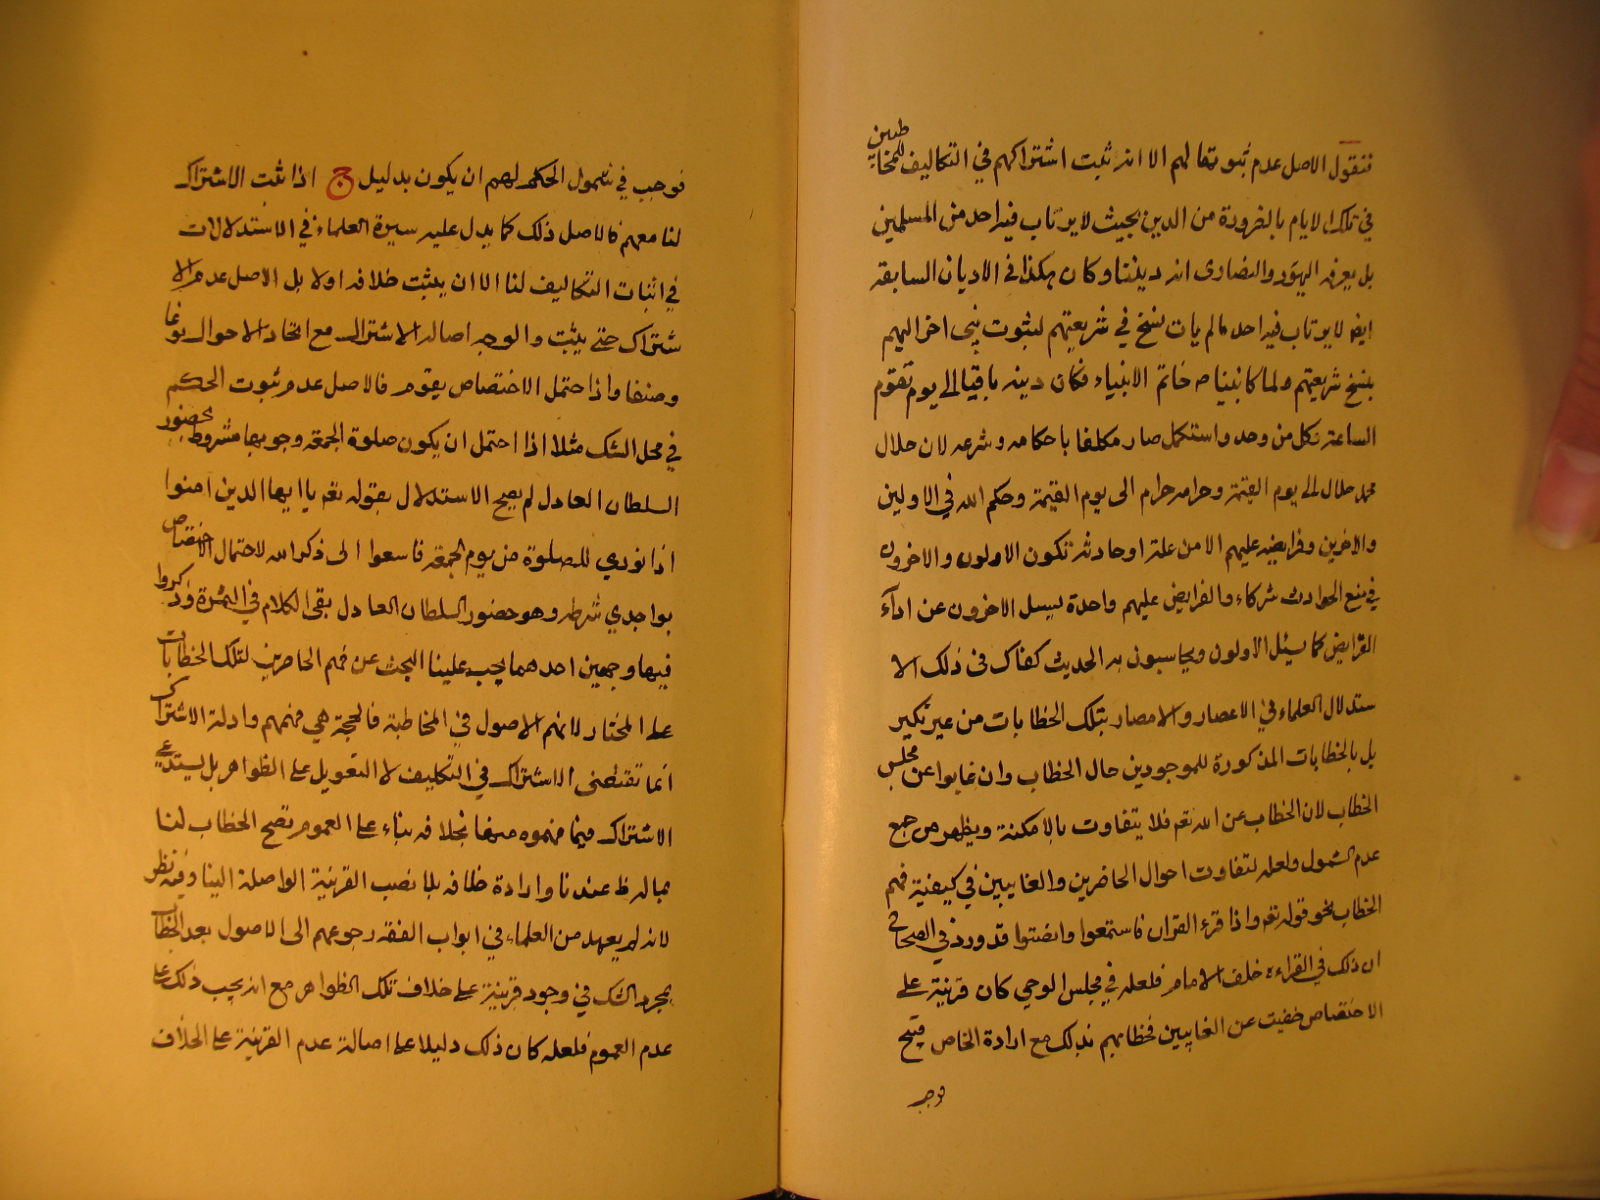 فنقول الاصل عدم ثبوتها لهم الا انه ثبت اشتراكهم في التكاليف للمخاطبين
في تلك الايام بالضرورة من الدين بحيث لا يرتاب فيه احد من المسلمين
بل يعرفه اليهود والنصارى انه ديننا وكان هكذا في الاديان السابقة
ايضا لا يرتاب فيه احد مالم يات نسخ في شريعتهم لثبوت نبى اخر اليهم
ينسخ شريعتهم ولما كا نبينا ص خاتم الانبياء فكان دينه باقيا الى يوم تقوم
الساعة فكل من وجد واستكمل صار مكلفا باحكامه وشرعه لان حلال
محمد حلال الى يوم القيمة وحرامه حرام الى يوم القيمة وحكم الله في الاولين
والاخرين وفرايضه عليهم الا من علة او حادث تكون الاولون والاخرون
في منع الحوادث شركاء والفرايض عليهم واحدة يسئل الاخرون عن اداء
الفرايض كما يسئل الاولون ويحاسبون به الحديث كفاك فى ذلك الا
ستدلال العلماء في الاعصار والامصار بتلك الخطابات من غير نكير
بل بالخطابات المذكورة للموجودين حال الخطاب وان غابوا عن مجلس
الخطاب لان الخطاب عن الله تعم فلا يتفاوت بالامكنة ويظهر من جمع
عدم الشمول ولعله لتفاوت احوال الحاضرين والغايبين في كيفية فهم
الخطاب نحو قوله تعم واذا قرء القران فاستمعوا وانصتوا قد ورد في الصحاح
ان ذلك في القراءة خلف الامام فلعله في مجلس الوحي كان قرينة على
الاختصاص خفيت عن الغايبين فخطابهم بذلك مع ارادة الخاص قبيح
فوجب
فوجب في شمول الحكم لهم ان يكون بدليل ج اذا ثبت الاشتراك
لنا معهم فالاصل ذلك كما يدل عليه سيرة العلماء في الاستدلالات
في اثبات التكاليف لنا الا ان يثبت خلافه اولا بل الاصل عدم الا
شتراك حتى يثبت والوجه اصالة الاشتراك مع اتحاد الاحوال نوعا
وصنفا واذا احتمل الاختصاص بقوم فالاصل عدم ثبوت الحكم
في محل الشك مثلا اذا احتمل ان يكون صلوة الجمعة وجوبها مشروط بحضور
السلطان العادل لم يصح الاستدلال بقوله تعم يا ايها الذين امنوا
اذا نودي للصلوة من يوم الجمعة فاسعوا الى ذكر الله لاحتمال الاختصاص
بواجدي شرطه وهو حضور السلطان العادل بقى الكلام في الثمرة وذكروا
فيها وجهين احدهما يجب علينا البحث عن فهم الحاضرين لتلك الخطابات
على المختار لانهم الاصول في المخاطبة فالحجة هي فهمهم وادلة الاشتراك
انما تقتضى الاشتراك في التكليف لا التعويل على الظواهر بل يستدعي
الاشتراك فيما فهموه منها بخلافه بناء على العموم فتصح الخطاب لنا
بماله ظ عندنا وارادة خلافه بلا نصب القرينة الواصلة الينا وفيه نظر
لانه لم يعهد من العلماء في ابواب الفقه رجوعهم الى الاصول بعد الخطاب
بمجرد الشك في وجود قرينة على خلاف تلك الظواهر مع انه يجب ذلك على
عدم العموم فلعله كان ذلك دليلا على اصالة عدم القرينة على الخلاف